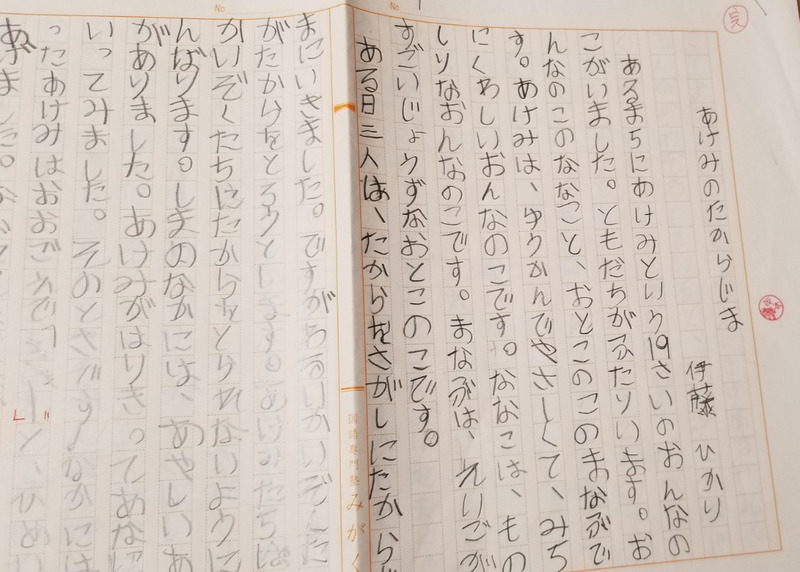 完
No
No
あけみのたからじま
伊藤 ひかり
あるまちにあけみという19さいのおんなの
こがいました。ともだちがふたりいます。お
んなのこのななこと、おとこのこのまなぶで
す。あけみは、ゆうかんでやさしくて、みち
にくわしいおんなのこです。ななこは、もの
しりなおんなのこです。まなぶは、えいごが
すごいじょうずなおとこのこです。
ある日三人は、たからをさがしにたからじ
国語専門塾 みがく
まにいきました。ですがわるいかいぞくた
がたからをとろうとします。あけみたちは
かいぞくたちにたからをとられないように
んばります。しまのなかには、あやしいあ
がありました。あけみがはりきってあなに
いってみました。そのときです！なかには
ったあけみはおおごえで、
と、ひめい
あげました。